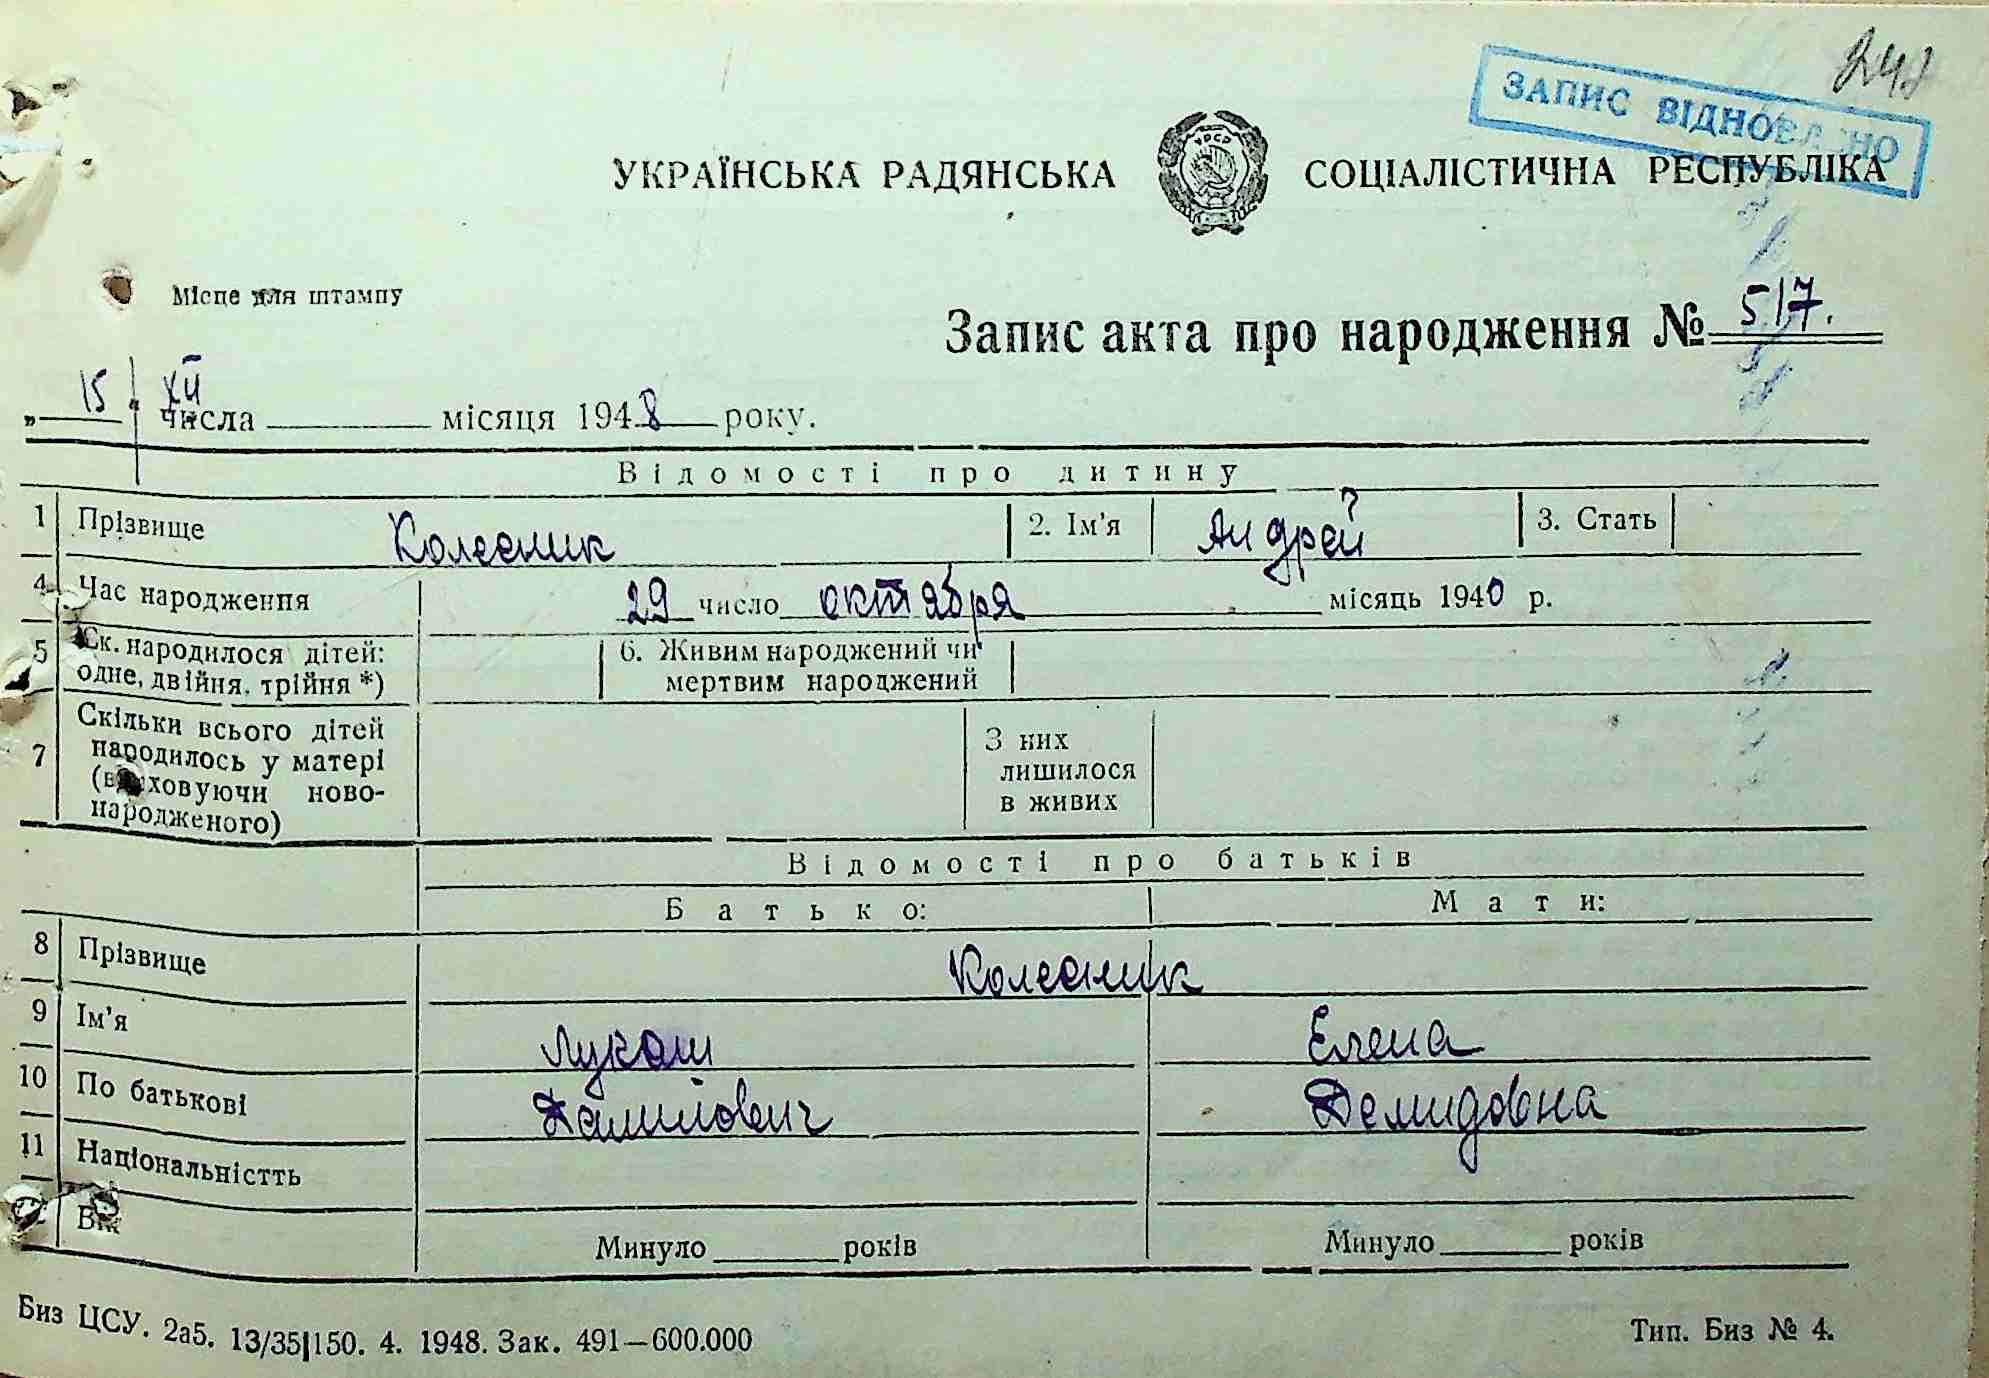 248
ЗАПИС ВІДНОВЛЕНО
УКРАЇНСЬКА РАДЯНСЬКА СОЦІАЛІСТИЧНА РЕСПУБЛІКА
УРСР
Місце для штампу
Запис акта про народження № 517.
„ 15 “ XII числа місяця 1948 року.
Відомості про дитину
1 Прізвище Колесник 2. Ім'я Андрей 3. Стать
4 Час народження 29 число октября місяць 1940 р.
5 Ск. народилося дітей: одне, двійня, трійня *) 6. Живим народжений чи мертвим народжений
7 Скільки всього дітей народилось у матері (враховуючи новонародженого) З них лишилося в живих
Відомості про батьків
Батько: Мати:
8 Прізвище Колесник
9 Ім'я Лукаш Елена
10 По батькові Данилович Демидовна
11 Національністть
Вік Минуло років Минуло років
Биз ЦСУ. 2а5. 13/35|150. 4. 1948. Зак. 491—600.000 Тип. Биз № 4.